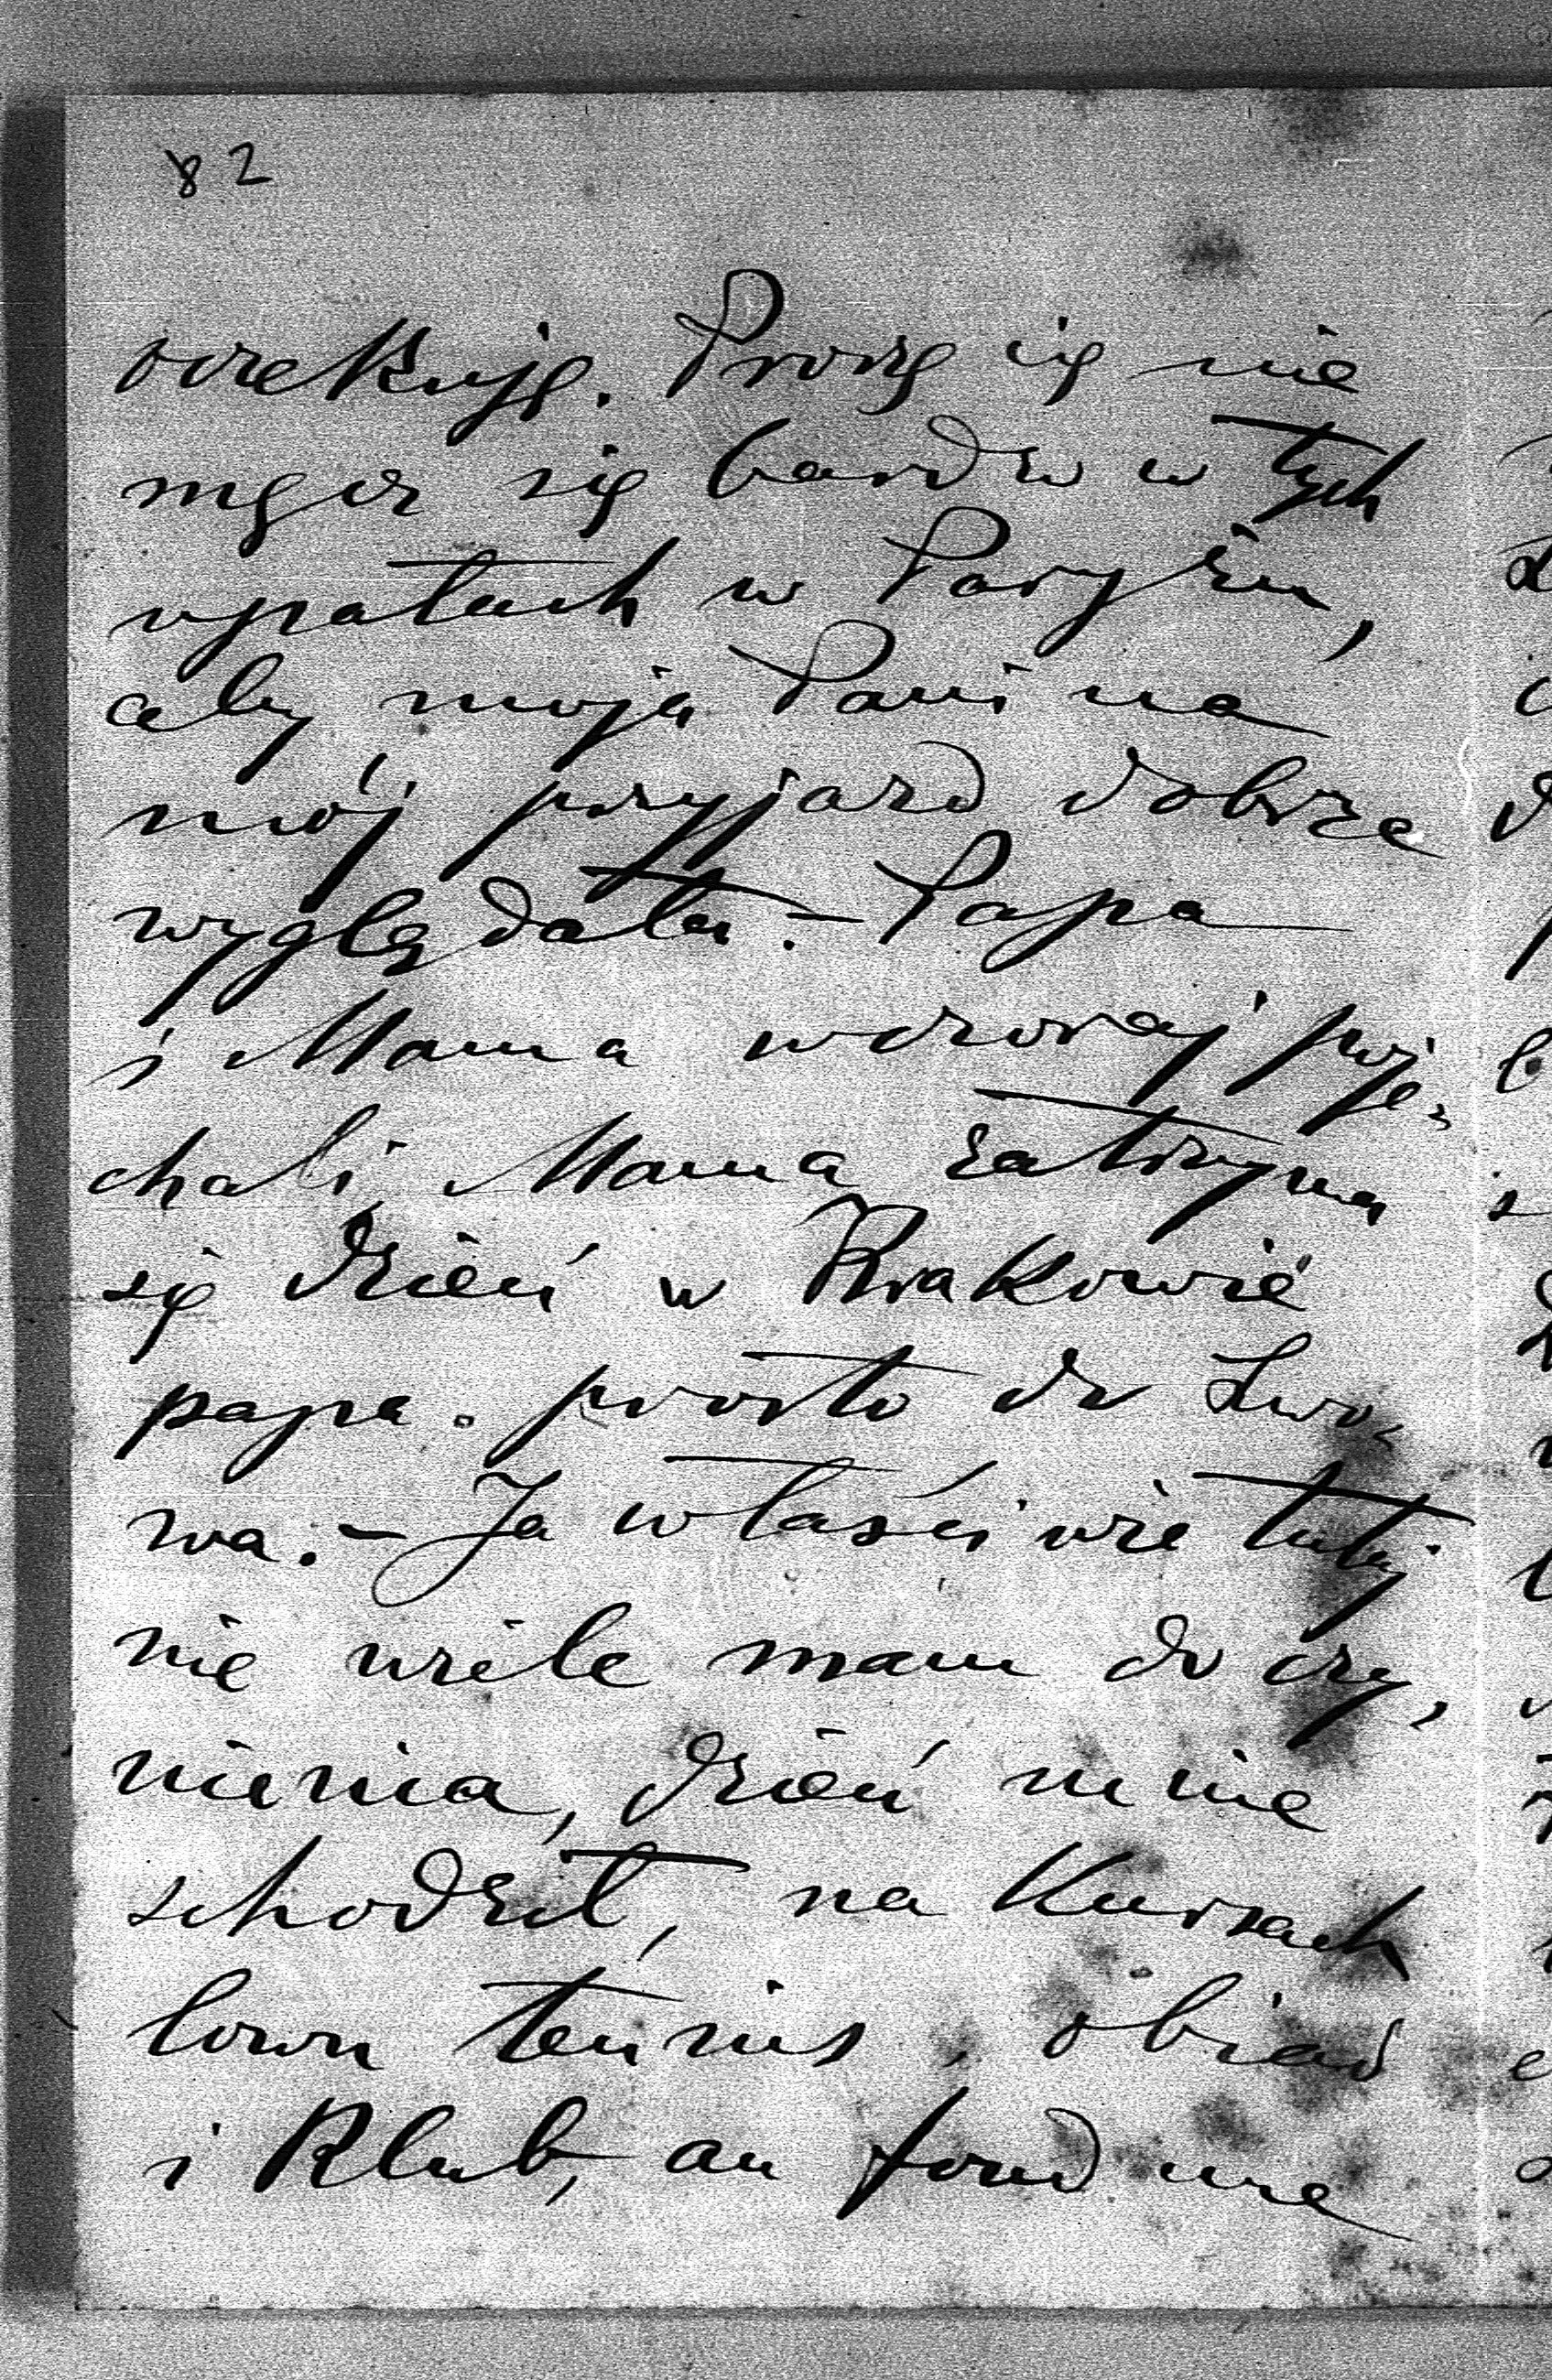 82
oczekuję. Proszę cię nie
męcz się bardzo w tych
upałach w Paryżu,
aby moja Pani na
mój przyjazd dobrze
wyglądała. – Papa
i Mama wczoraj poje-
chali, Mama zatrzyma
się dzień w Krakowie
papa. prosto do Lwo-
wa. – Ja właściwie tutaj
nie wiele mam do czy-
nienia, dzień mnie
schodził, na Kursach
lown tennis, obiad
i Klub, au fond me